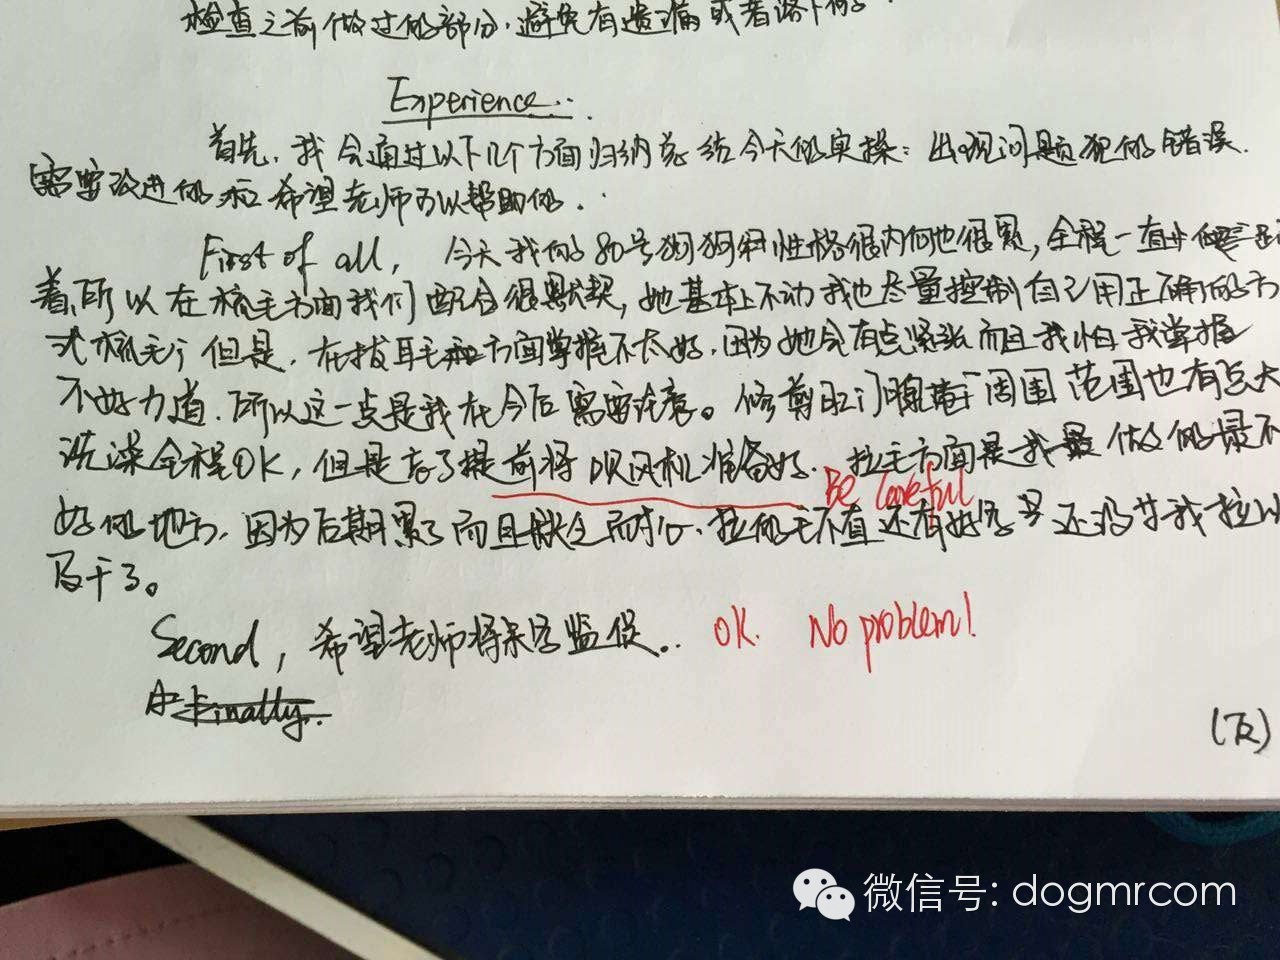 检查之前做过的部分,避免有遗漏或者落下的.
Experience..
首先,我会通过以下几个方面归纳总结今天的实操:出现问题犯的错误.
需要改进的和希望老师可以帮助的.
First of all, 今天我的80号狗狗 性格很内向他很累,全程一直
着,所以在梳毛方面我们配合很默契,她基本上不动我也尽量控制自己用正确的方
式梳毛,但是,在拔耳毛方面掌握不太好,因为她会有点紧张而且我怕我掌握
不好力道.所以这一点是我在今后需要注意。修剪肛门腹 周围范围也有点大
洗澡全程OK,但是忘了提前将吹风机准备好.拉毛方面是我 做的最不
Be Careful
好的地方,因为后期累了而且缺乏耐心.拉的毛不直还有好多 还没等我拉以
及干了。
Second, 希望老师将来多监促。. OK. No problem!
Finally..
(反)
微信号: dogmrcom